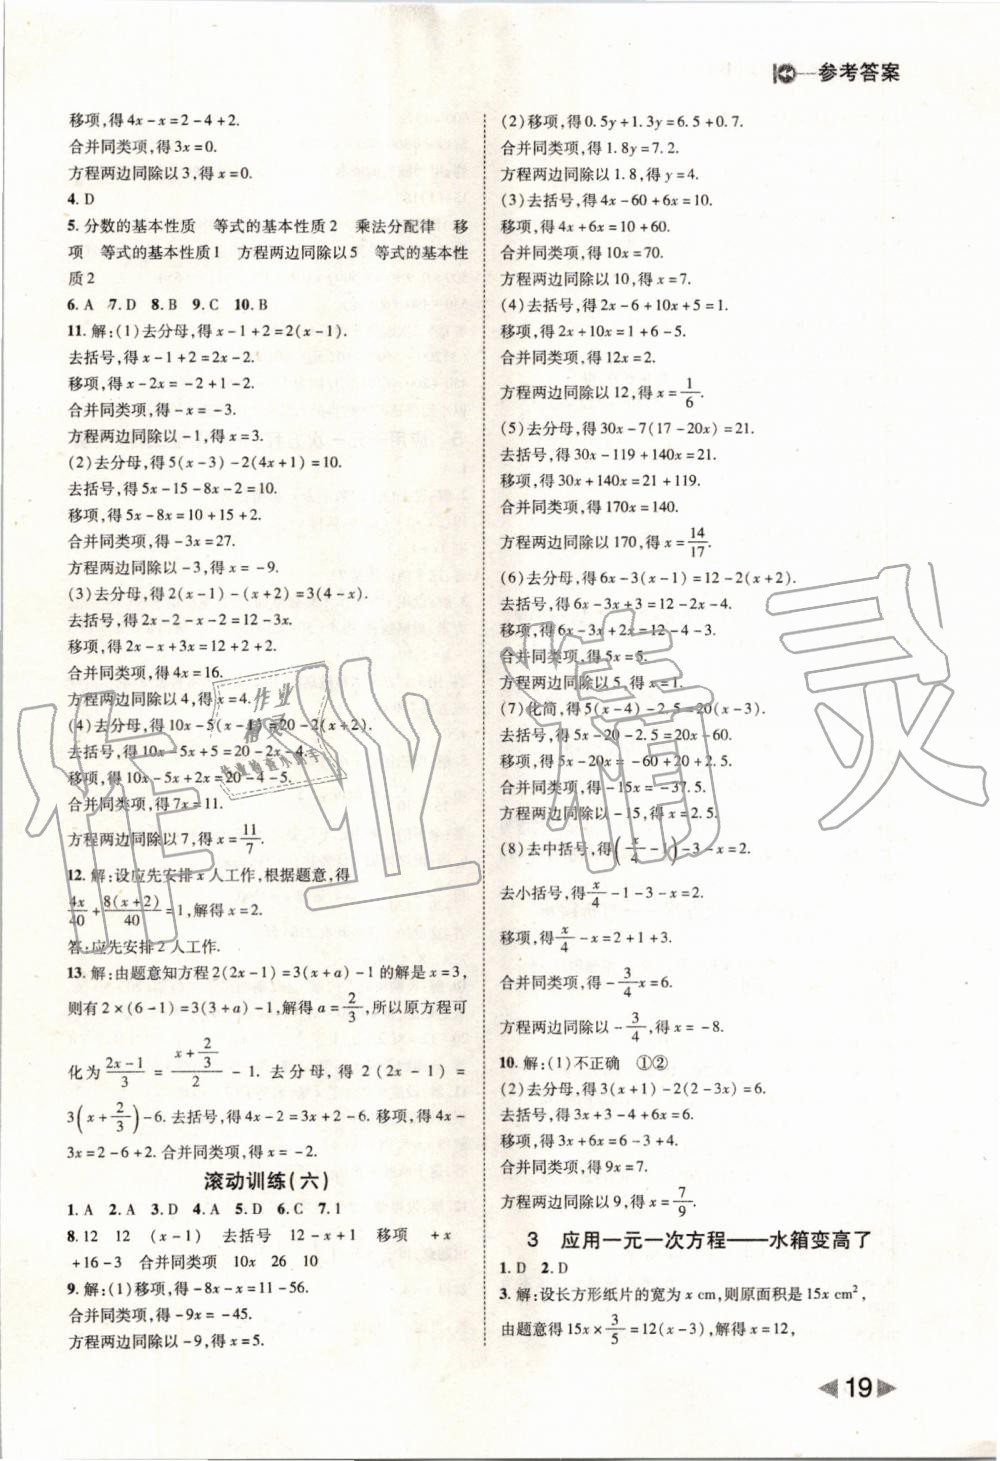 参考答案
移项,得4x-x=2-4+2.
合并同类项,得3x=0.
方程两边同除以3,得x=0.
4. D
5. 分数的基本性质 等式的基本性质2 乘法分配律 移
项 等式的基本性质1 方程两边同除以5 等式的基本性
质2
6. A 7. D 8. B 9. C 10. B
11. 解:(1)去分母,得x-1+2=2(x-1).
去括号,得x-1+2=2x-2.
移项,得x-2x=-2+1-2.
合并同类项,得-x=-3.
方程两边同除以-1,得x=3.
(2)去分母,得5(x-3)-2(4x+1)=10.
去括号,得5x-15-8x-2=10.
移项,得5x-8x=10+15+2.
合并同类项,得-3x=27.
方程两边同除以-3,得x=-9.
(3)去分母,得2(x-1)-(x+2)=3(4-x).
去括号,得2x-2-x-2=12-3x.
移项,得2x-x+3x=12+2+2.
合并同类项,得4x=16.
方程两边同除以4,得x=4.
(4)去分母,得10x-5(x-1)=20-2(x+2).
去括号,得10x-5x+5=20-2x-4.
移项,得10x-5x+2x=20-4-5.
合并同类项,得7x=11.
方程两边同除以7,得x=11/7.
12. 解:设应先安排x人工作,根据题意,得
4x/40+8(x+2)/40=1,解得x=2.
答:应先安排2人工作.
13. 解:由题意知方程2(2x-1)=3(x+a)-1的解是x=3,
则有2×(6-1)=3(3+a)-1,解得a=2/3,所以原方程可
化为(2x-1)/3=(x+2/3)/2-1. 去分母,得2(2x-1)=
3(x+2/3)-6. 去括号,得4x-2=3x+2-6. 移项,得4x-
3x=2-6+2. 合并同类项,得x=-2.
滚动训练(六)
1. A 2. A 3. D 4. A 5. D 6. C 7. 1
8. 12 12 (x-1) 去括号 12-x+1 移项 +x
+16-3 合并同类项 10x 26 10
9. 解:(1)移项,得-8x-x=11-56.
合并同类项,得-9x=-45.
方程两边同除以-9,得x=5.
(2)移项,得0.5y+1.3y=6.5+0.7.
合并同类项,得1.8y=7.2.
方程两边同除以1.8,得y=4.
(3)去括号,得4x-60+6x=10.
移项,得4x+6x=10+60.
合并同类项,得10x=70.
方程两边同除以10,得x=7.
(4)去括号,得2x-6+10x+5=1.
移项,得2x+10x=1+6-5.
合并同类项,得12x=2.
方程两边同除以12,得x=1/6.
(5)去分母,得30x-7(17-20x)=21.
去括号,得30x-119+140x=21.
移项,得30x+140x=21+119.
合并同类项,得170x=140.
方程两边同除以170,得x=14/17.
(6)去分母,得6x-3(x-1)=12-2(x+2).
去括号,得6x-3x+3=12-2x-4.
移项,得6x-3x+2x=12-4-3.
合并同类项,得5x=5.
方程两边同除以5,得x=1.
(7)化简,得5(x-4)-2.5=20(x-3).
去括号,得5x-20-2.5=20x-60.
移项,得5x-20x=-60+20+2.5.
合并同类项,得-15x=-37.5.
方程两边同除以-15,得x=2.5.
(8)去中括号,得(x/4-1)-3-x=2.
去小括号,得x/4-1-3-x=2.
移项,得x/4-x=2+1+3.
合并同类项,得-3/4x=6.
方程两边同除以-3/4,得x=-8.
10. 解:(1)不正确 ①②
(2)去分母,得3(x+1)-2(2-3x)=6.
去括号,得3x+3-4+6x=6.
移项,得3x+6x=6-3+4.
合并同类项,得9x=7.
方程两边同除以9,得x=7/9.
3 应用一元一次方程——水箱变高了
1. D 2. D
3. 解:设长方形纸片的宽为x cm,则原面积是15x cm²,
由题意得15x×3/5=12(x-3),解得x=12,
19
作业精灵
作业
精灵
作业检查小帮手